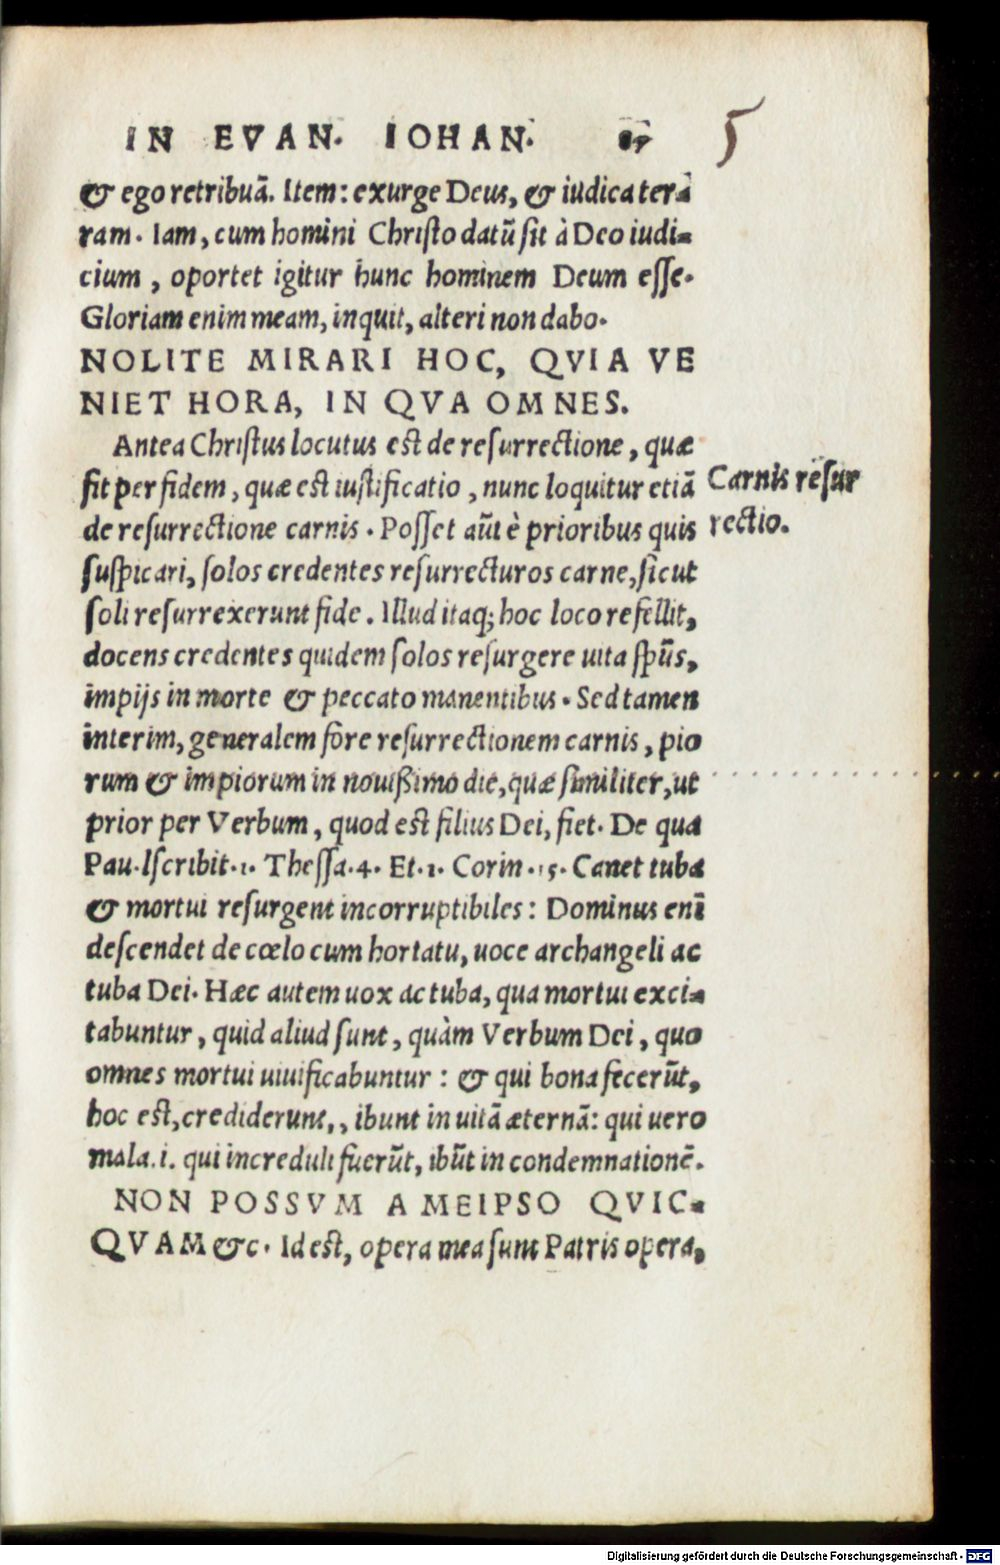 IN EVAN. IOHAN. 87
5
& ego retribuã. Item: exurge Deus, & iudica ter-
ram. Iam, cum homini Christo datũ sit à Deo iudi-
cium, oportet igitur hunc hominem Deum esse.
Gloriam enim meam, inquit, alteri non dabo.
NOLITE MIRARI HOC, QVIA VE
NIET HORA, IN QVA OMNES.
Antea Christus locutus est de resurrectione, quæ
fit per fidem, quæ est iustificatio, nunc loquitur etiã
Carnis resur
de resurrectione carnis. Posset aũt è prioribus quis
rectio.
suspicari, solos credentes resurrecturos carne, sicut
soli resurrexerunt fide. Illud itaq; hoc loco refellit,
docens credentes quidem solos resurgere uita spũs,
impijs in morte & peccato manentibus. Sed tamen
interim, generalem fore resurrectionem carnis, pio
rum & impiorum in nouißimo die, quæ similiter, ut
prior per Verbum, quod est filius Dei, fiet. De qua
Pau. Iscribit. 1. Thessa. 4. Et. 1. Corin. 15. Canet tuba
& mortui resurgent incorruptibiles: Dominus enĩ
descendet de cœlo cum hortatu, uoce archangeli ac
tuba Dei. Hæc autem uox ac tuba, qua mortui exci-
tabuntur, quid aliud sunt, quàm Verbum Dei, quo
omnes mortui uiuificabuntur: & qui bona fecerũt,
hoc est, crediderunt,, ibunt in uitã æternã: qui uero
mala. i. qui increduli fuerũt, ibũt in condemnationẽ.
NON POSSVM A MEIPSO QVIC-
QVAM &c. Id est, opera mea sunt Patris opera,
Digitalisierung gefördert durch die Deutsche Forschungsgemeinschaft - DFG